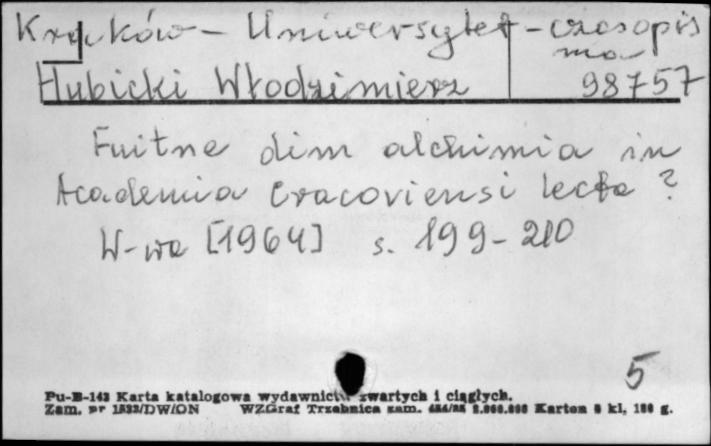 Kraków – Uniwersytet – czasopis
ma
Hubicki Włodzimierz 98757
Fuitne dim alchimia in
Academia Cracoviensi lecta ?
W-wa [1964] s. 199-210
5
Pu-B-143 Karta katalogowa wydawnictw zwartych i ciągłych.
Zam. nr 1533/DW/ON WZGraf Trzebnica zam. Karton kl, g.